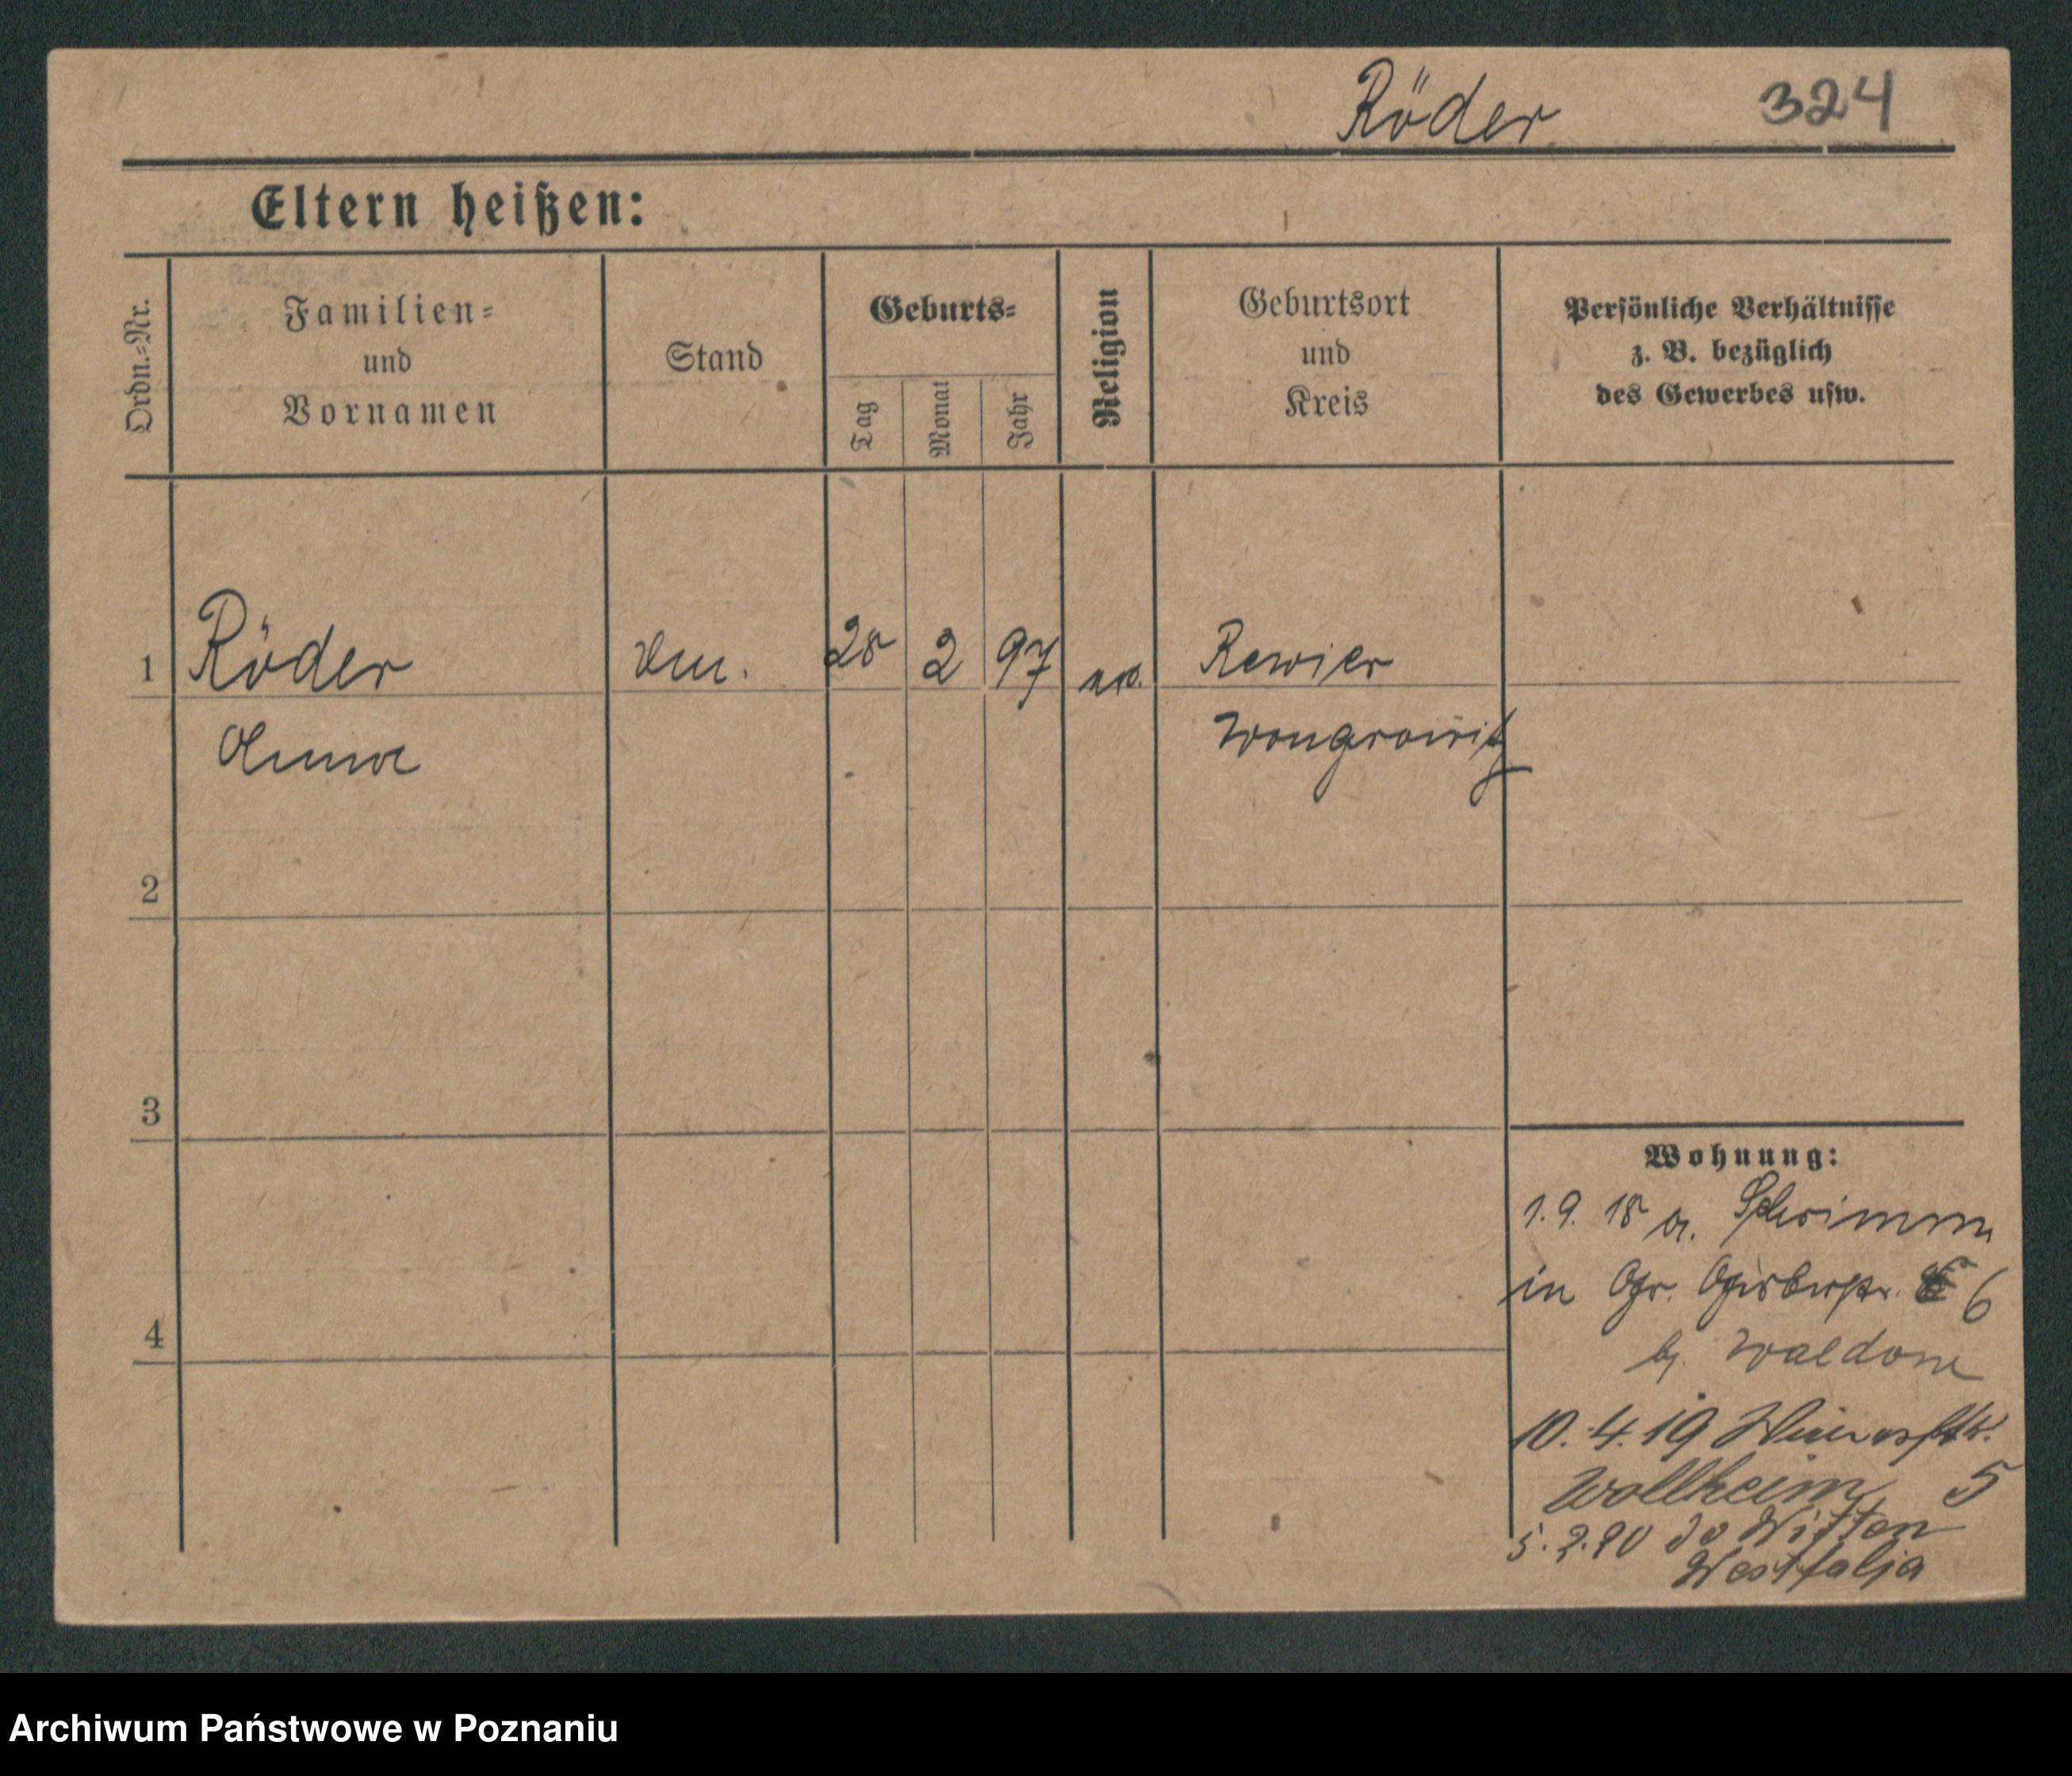 Röder 324
Eltern heißen:
Ordn.=Nr.
Familien=
und
Vornamen
Stand
Geburts=
Tag
Monat
Jahr
Religion
Geburtsort
und
Kreis
Persönliche Verhältnisse
z. B. bezüglich
des Gewerbes usw.
1 Röder 28 2 97 Rewier
Anna Wongrowitz
2
3
4
Wohnung:
1.9. 18 a. Schrimm
in Gr. Gerberstr. 6
b. Waldow
10.4.19
Wollheim 5
do Witten
Westfalja
Archiwum Państwowe w Poznaniu